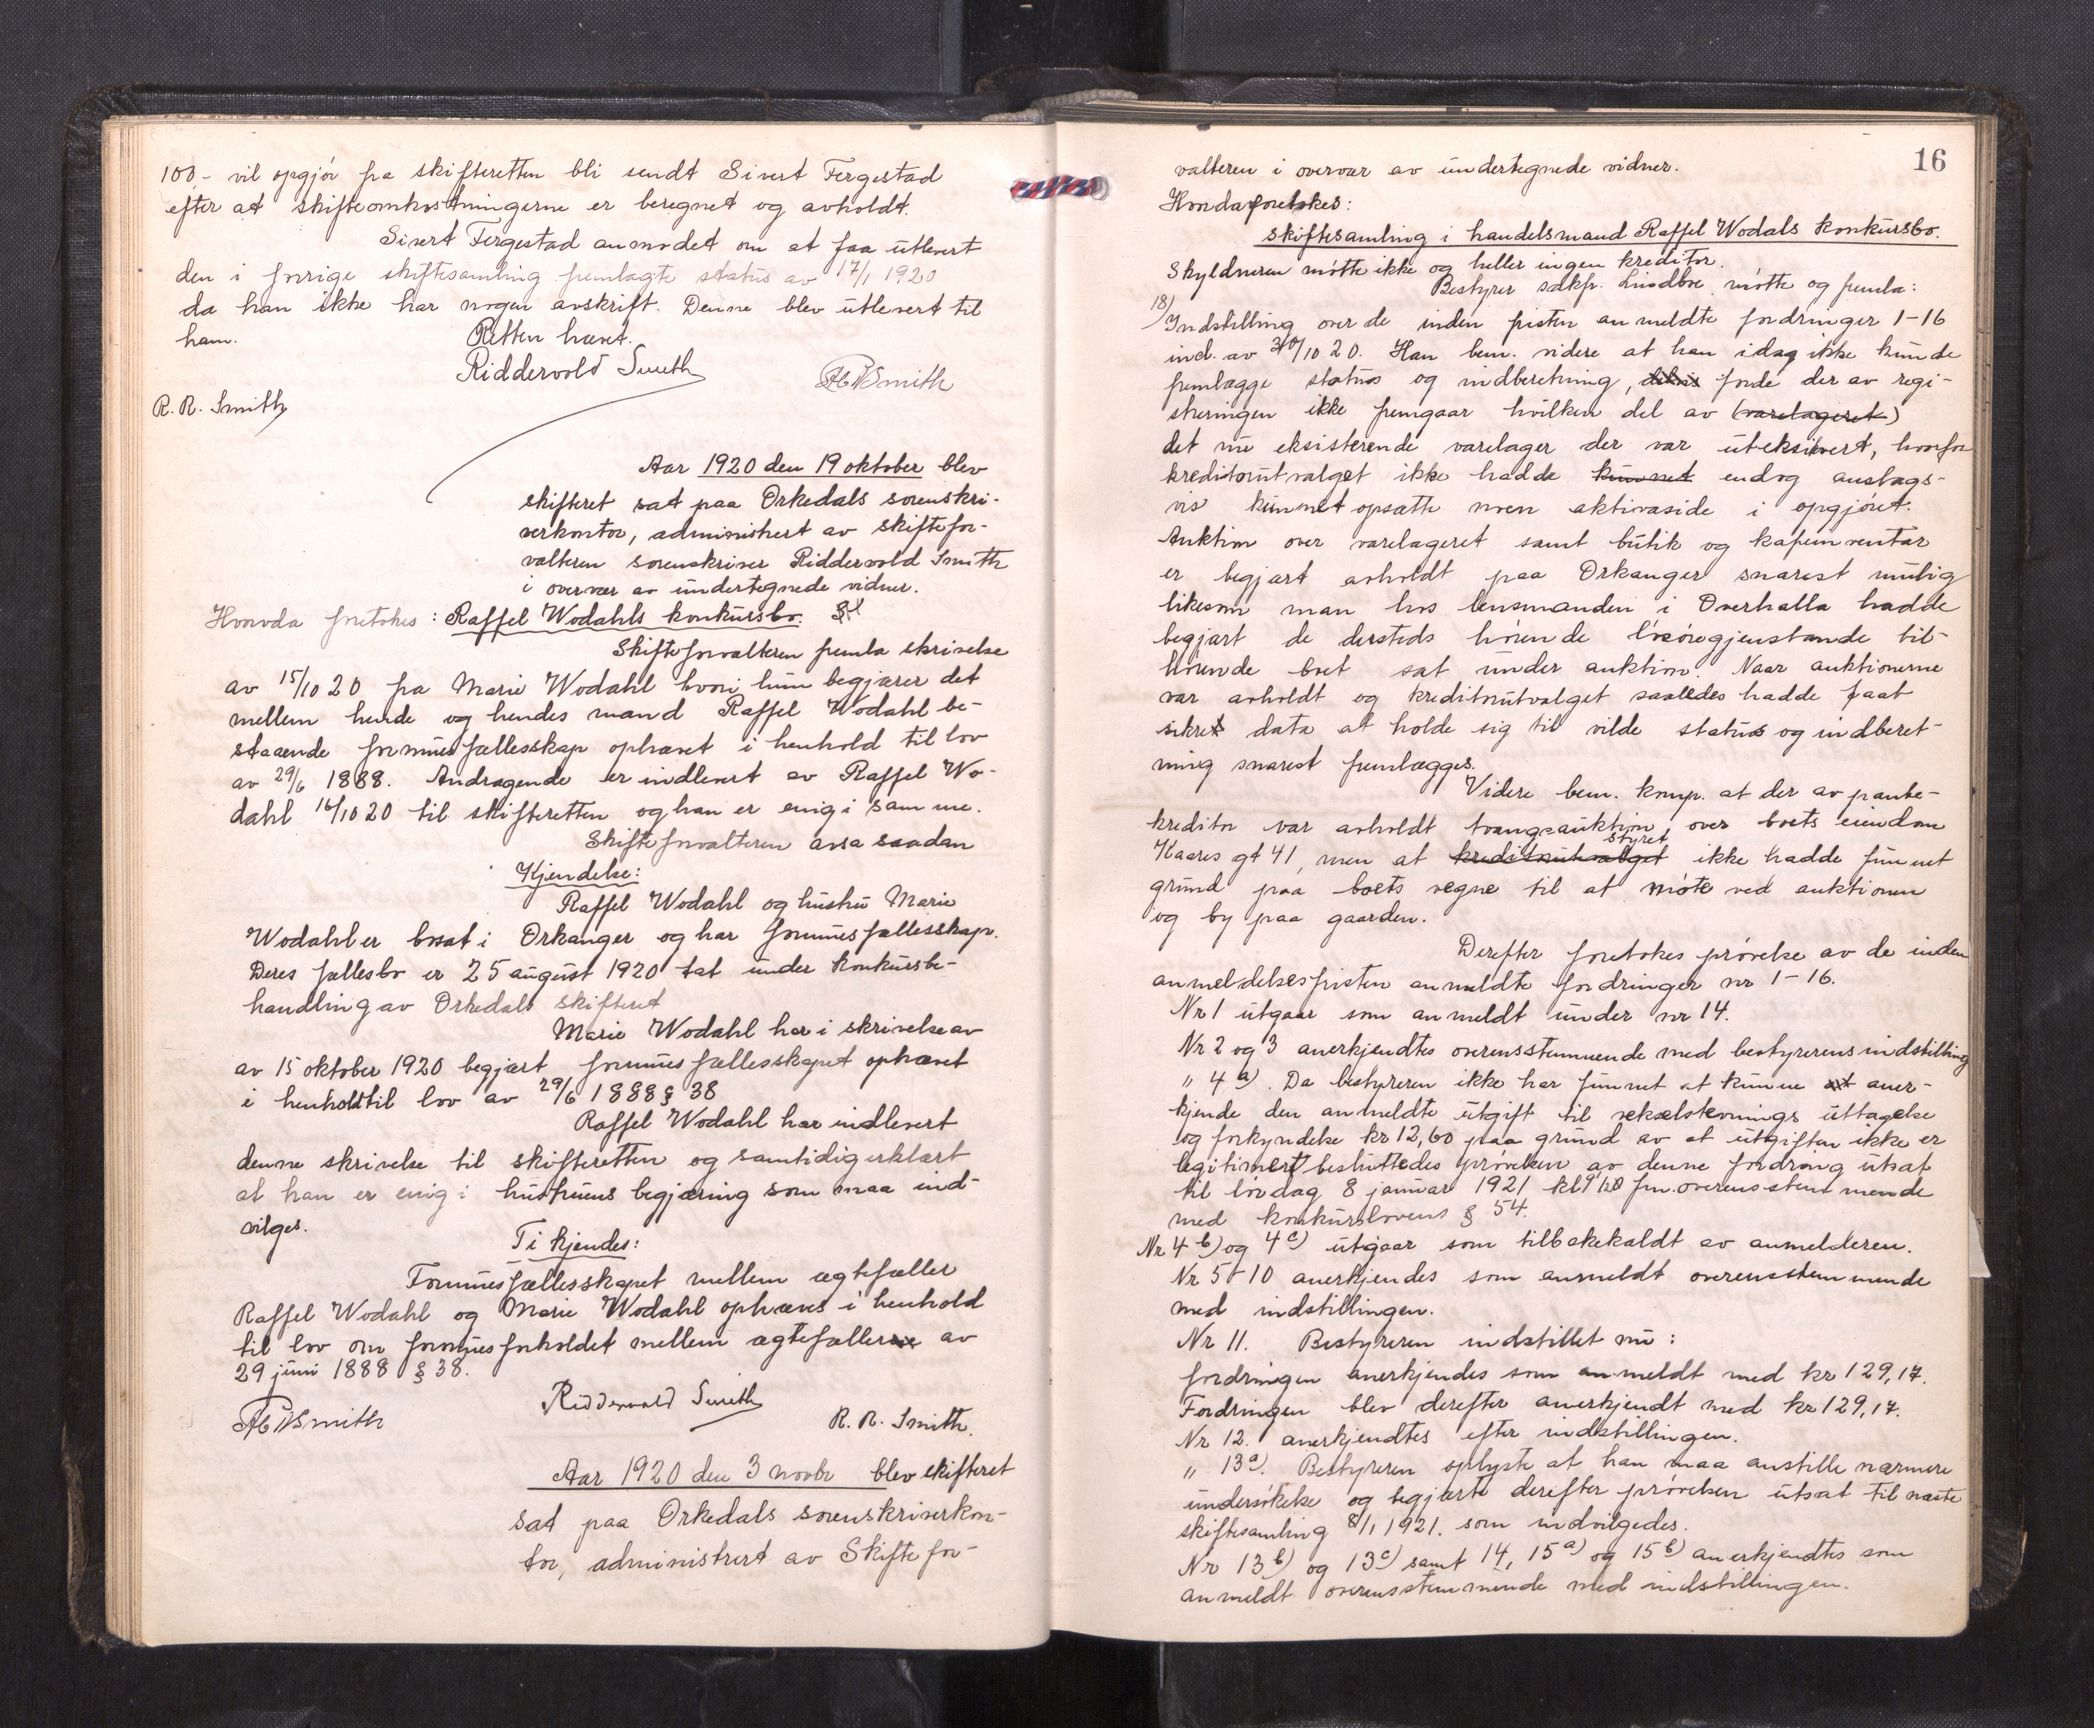 100,- vil opgjør fra skifteretten bli sendt Sivert Fergestad
efter at skifteomkostningerne er beregnet og avholdt.
Sivert Fergestad anmodet om at faa utlevert
den i forrige skiftesamling fremlagte status av 17/1 1920
da han ikke har nogen avskrift. Denne blev utlevert til
ham. Retten hævet.
Riddervold Smith
R. R. Smith
Aar 1920 den 19 oktober blev
skifteret sat paa Orkedals sorenskri-
verkontor, administrert av skiftefor-
valteren sorenskriver Riddervold Smith
i overvær av undertegnede vidner.
Hvorda foretokes: Raffel Wodahls konkursbo.
Skifteforvalteren fremla skrivelse
av 15/10 20 fra Marie Wodahl hvori hun begjærer det
mellem hende og hendes mand Raffel Wodahl be-
staaende formuesfællesskap ophævet i henhold til lov
av 29/6 1888. Andragende er indlevert av Raffel Wo-
dahl 16/10 20 til skifteretten og han er enig i samme.
Skifteforvalteren avsa saadan
Kjendelse:
Raffel Wodahl og hustru Marie
Wodahl er bosat i Orkanger og har formuesfællesskap.
Deres fællesbo er 25 august 1920 tat under konkursbe-
handling av Orkedals skifteret
Marie Wodahl har i skrivelse av
av 15 oktober 1920 begjært formuesfællesskapet ophævet
i henhold til lov av 29/6 1888 § 38
Raffel Wodahl har indlevert
denne skrivelse til skifteretten og samtidig erklært
at han er enig i hustruens begjæring som maa ind-
vilges.
Ti kjendes:
Formuesfællesskapet mellem ægtefæller
Raffel Wodahl og Marie Wodahl ophæves i henhold
til lov om formuesforholdet mellem ægtefæller av
29 juni 1888 § 38.
Riddervold Smith
R. R. Smith.
Aar 1920 den 3 novbr blev skifteret
sat paa Orkedals sorenskriverkon-
tor, administrert av Skiftefor-
16
valteren i overvær av undertegnede vidner.
Hvorda foretokes:
skiftesamling i handelsmand Raffel Wodals konkursbo.
Skyldneren møtte ikke og heller ingen kreditor.
Bestyrer sakfr. Lindboe møtte og fremla:
18) Indstilling over de inden fristen anmeldte fordringer 1-16
ind. av 30/10 20. Han bem. videre at han idag ikke kunde
fremlægge status og indberetning, fordi der av regi-
streringen ikke fremgaar hvilken del av (varelageret)
det nu eksisterende varelager der var utekslivert, hvorfor
kreditorutvalget ikke hadde kunnet endog anslags-
vis kunnet opsætte noen aktivaside i opgjøret.
Auktion over varelageret samt butik og kafeinventar
er begjært avholdt paa Orkanger snarest mulig
likesom man hos lensmanden i Overhalla hadde
begjært de dersteds hørende løsøregjenstande til-
hørende boet sat under auktion. Naar auktionerne
var avholdt og kreditorutvalget saaledes hadde faat
sikret data at holde sig til vilde status og indberet-
ning snarest fremlægges.
Videre bem. komp. at der av pante-
kreditor var avholdt tvangsauktion over boets eiendom
Kaares gt 41, men at kreditorutvalget styret ikke hadde funnet
grund paa boets vegne til at møte ved auktionen
og by paa gaarden.
Derefter foretokes prøvelse av de inden
anmeldelsesfristen anmeldte fordringer nr 1-16.
Nr 1 utgaar som anmeldt under nr 14.
Nr 2 og 3 anerkjendtes overensstemmende med bestyrerens indstilling
" 4 a). Da bestyreren ikke har funnet at kunne at aner-
kjende den anmeldte utgift til vekselstevnings uttagelse
og forkyndelse kr 12,60 paa grund av at utgiften ikke er
legitimert besluttedes prøvelsen av denne fordring utsat
til lørdag 8 januar 1921 kl 9 1/2 fm overensstemmende
med konkurslovens § 54.
Nr 4 b) og 4 c) utgaar som tilbakekaldt av anmelderen.
Nr 5-10 anerkjendes som anmeldt overensstemmende
med indstillingen.
Nr 11. Bestyreren indstillet nu:
fordringen anerkjendes som anmeldt med kr 129,17.
Fordringen blev derefter anerkjendt med kr 129,17.
Nr 12. anerkjendtes efter indstillingen.
" 13 a). Bestyreren oplyste at han maa anstille nærmere
undersøkelse og begjærte derefter prøvelsen utsat til næste
skiftesamling 8/1 1921. som indvilgedes.
Nr 13 b) og 13 c) samt 14, 15 a) og 15 b) anerkjendtes som
anmeldt overensstemmende med indstillingen.